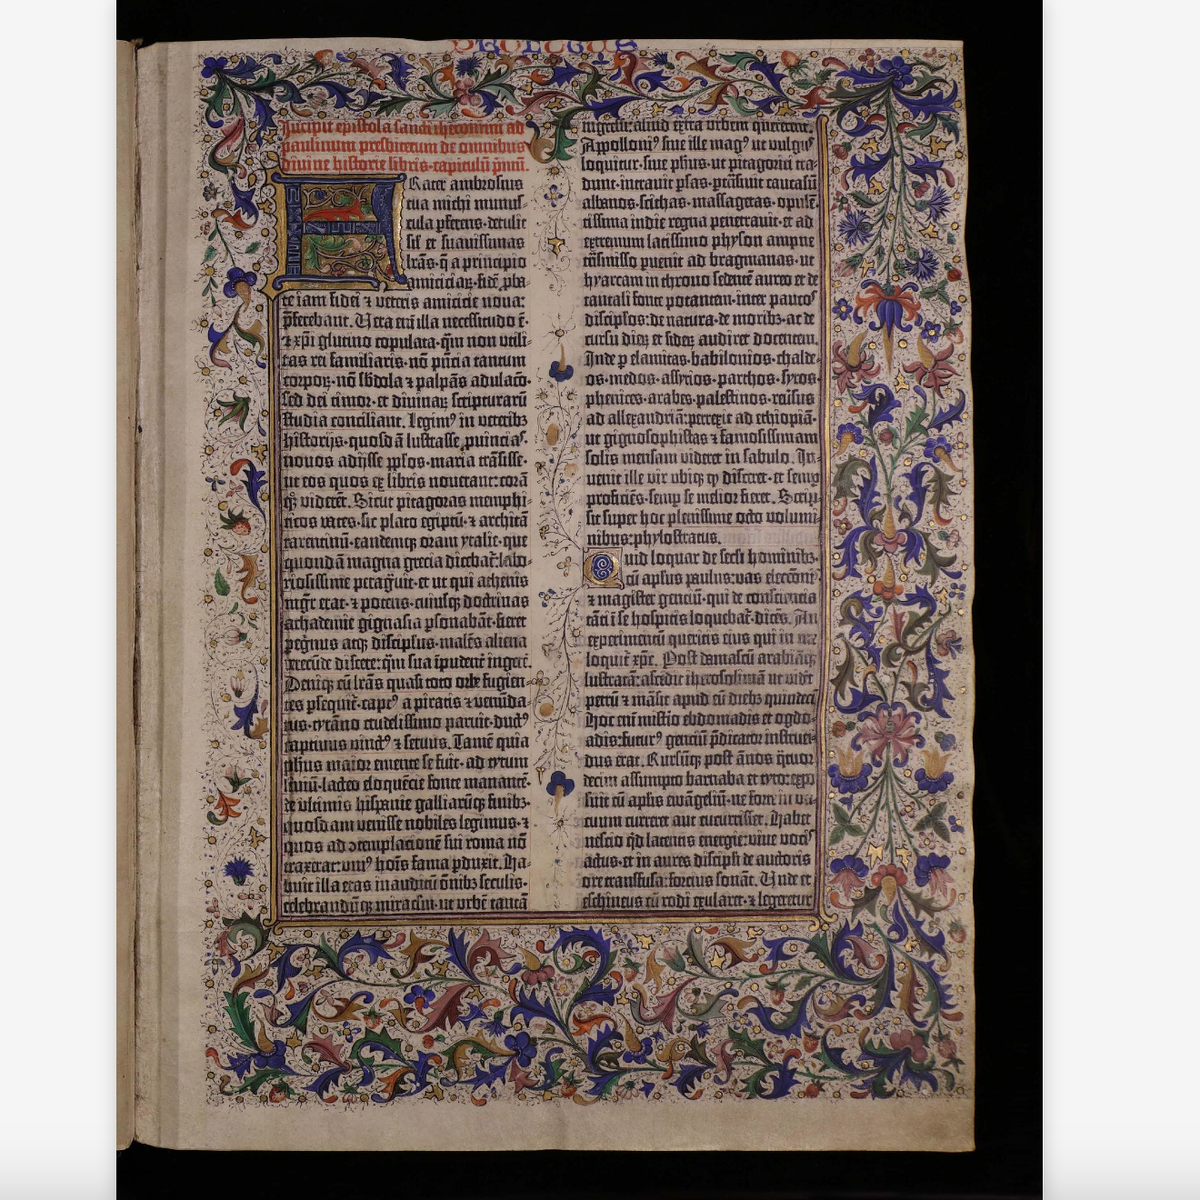 Incipit epistola sancti iheronimi ad
paulinum presbiterum de omnibus
diuine historie libris·capitulū p̄mū.
Frater ambrosius
tua michi munus-
cula pferens·detulit
sil̛ et suauissimas
lrās·q̄ a principio
amiciciaꝝ·fidē pba-
te iam fidei ⁊ veteris amicicie noua:
p̄ferebant. Vera em̄ illa necessitudo ē·
⁊ xpi glutino copulata·qm̄ non vtili-
tas rei familiaris·nō p̄ncia tantum
corpoꝝ·nō s̄bdola ⁊ palpās adulacō·
sed dei timor·et diuinaꝝ scripturarū
studia conciliant. Legimꝰ in veteribꝫ
historijs·quosdā lustrasse puinciaˢ·
nouos adijsse pplos·maria trāsisse·
ut eos quos ex libris nouerant: corā
qꝫ viderēt. Sicut pitagoras memphi-
ticos vates·sic plato egiptū·⁊ architā
tarentinū·eandemqꝫ oram ytalie·que
quondā magna grecia dicebat̛: labo-
riosissime peragᵘuit·et ut qui athenis
mgr̄ erat·⁊ potens·cuiusqꝫ doctrinas
achademie gignasia psonabāt·fieret
pegᵉnus atqꝫ discipulus·malēs aliena
verecūde discere: qm̄ sua īpudent̛ ingerē.
Deniqꝫ cū lrās quasi toto orbe fugien-
tes psequit̛·captꝰ a piratis ⁊ venūda-
tus·tyrāno crudelissimo paruit·ductꝰ
captiuus vinctꝰ ⁊ seruus. Tamē quia
phūs maior emente se fuit·ad tytum
liuiū·lacteo eloquēcie fonte manantē·
de vltimis hispanie galliarūqꝫ finibꝫ·
quosdam venisse nobiles legimus·⁊
quos ad ɔtemplacionē sui roma nō
traxerat: vniꝰ hoīs fama pduxit. Ha-
buit illa etas inauditū ōnibꝫ seculis·
celebrandūqꝫ miraclm̄·ut vrbē tantā
ingressi: aliud extra vrbem quererent.
Appolloniꝰ siue ille magꝰ ut vulgꝰ
loquitur·siue phūs·ut pitagorici tra-
dunt·intrauit psas·ptrāsiuit caucasū
albanos·scithas·massagetas·opulē-
tissima indie regna penetrauit·et ad
extremum latissimo physon ampne
trāsmisso puenit ad bragmanas·ut
hyarcam in throno sedentē aureo et de
tantali fonte potantem·inter paucoˢ
discipulos: de natura·de moribꝫ·ac de
cursu dieꝝ et sideꝝ audiret docentem.
Inde p elamitas·babilonios·chalde-
os·medos·assyrios·parthos·syros·
phenices·arabes·palestinos·reūsus
ad allexandriā: perrexit ad ethiopiā·
ut gignosophistas ⁊ famosissimam
solis mensam videret in sabulo. In-
uenit ille vir ubiqꝫ qꝫ disceret·et semp
proficiēs·semp se melior fieret. Scrip-
sit super hoc plenissime octo volumi-
nibus: phylostratus.
Quid loquar de secˡi hominibꝫ·
cū aplus paulus: vas elecconis·
⁊ magister genciū·qui de consciencia
tāti ī se hospitis loquebat̛·dicēs. An
experimentū queritis eius qui in me
loquit̛ xpc. Post damascū arabiāqꝫ
lustratā: ascēdit iherosolimā ut vidēt
petrū ⁊ māsit apud eū diebꝫ quindecī.
Hoc em̄ mistio ebdomadis et ogdo-
adis: futurꝰ genciū p̄dicator instruen-
dus erat. Rursūqꝫ post ānos q̄tuor-
decim assumpto barnaba et tyto: expo-
suit cū aplis ewāgeliū·ne forte in va-
cuum curreret aut cucurrisset. Habet
nescio q̄d latentis energie: viue vociˢ
actus·et in aures discipli de auctoris
ore transfusa: forcius sonat. Vnde et
eschineus cū rodi exularet·⁊ legeretur